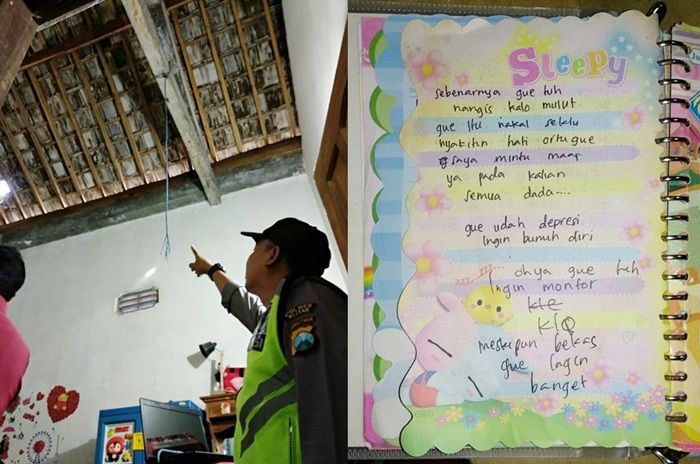 POLRES
BLITAR
Sleepy
sebenarnya gue tuh
nangis kalo mulut
gue itu nakal selalu
nyakitin hati ortu gue
saya mintu maap
ya pada kalian
semua dada....
gue udah depresi
Ingin bunuh diri
... ohya gue tuh
Ingin montor
KLE
KLO
meskipun bekas
gue Ingin
banget